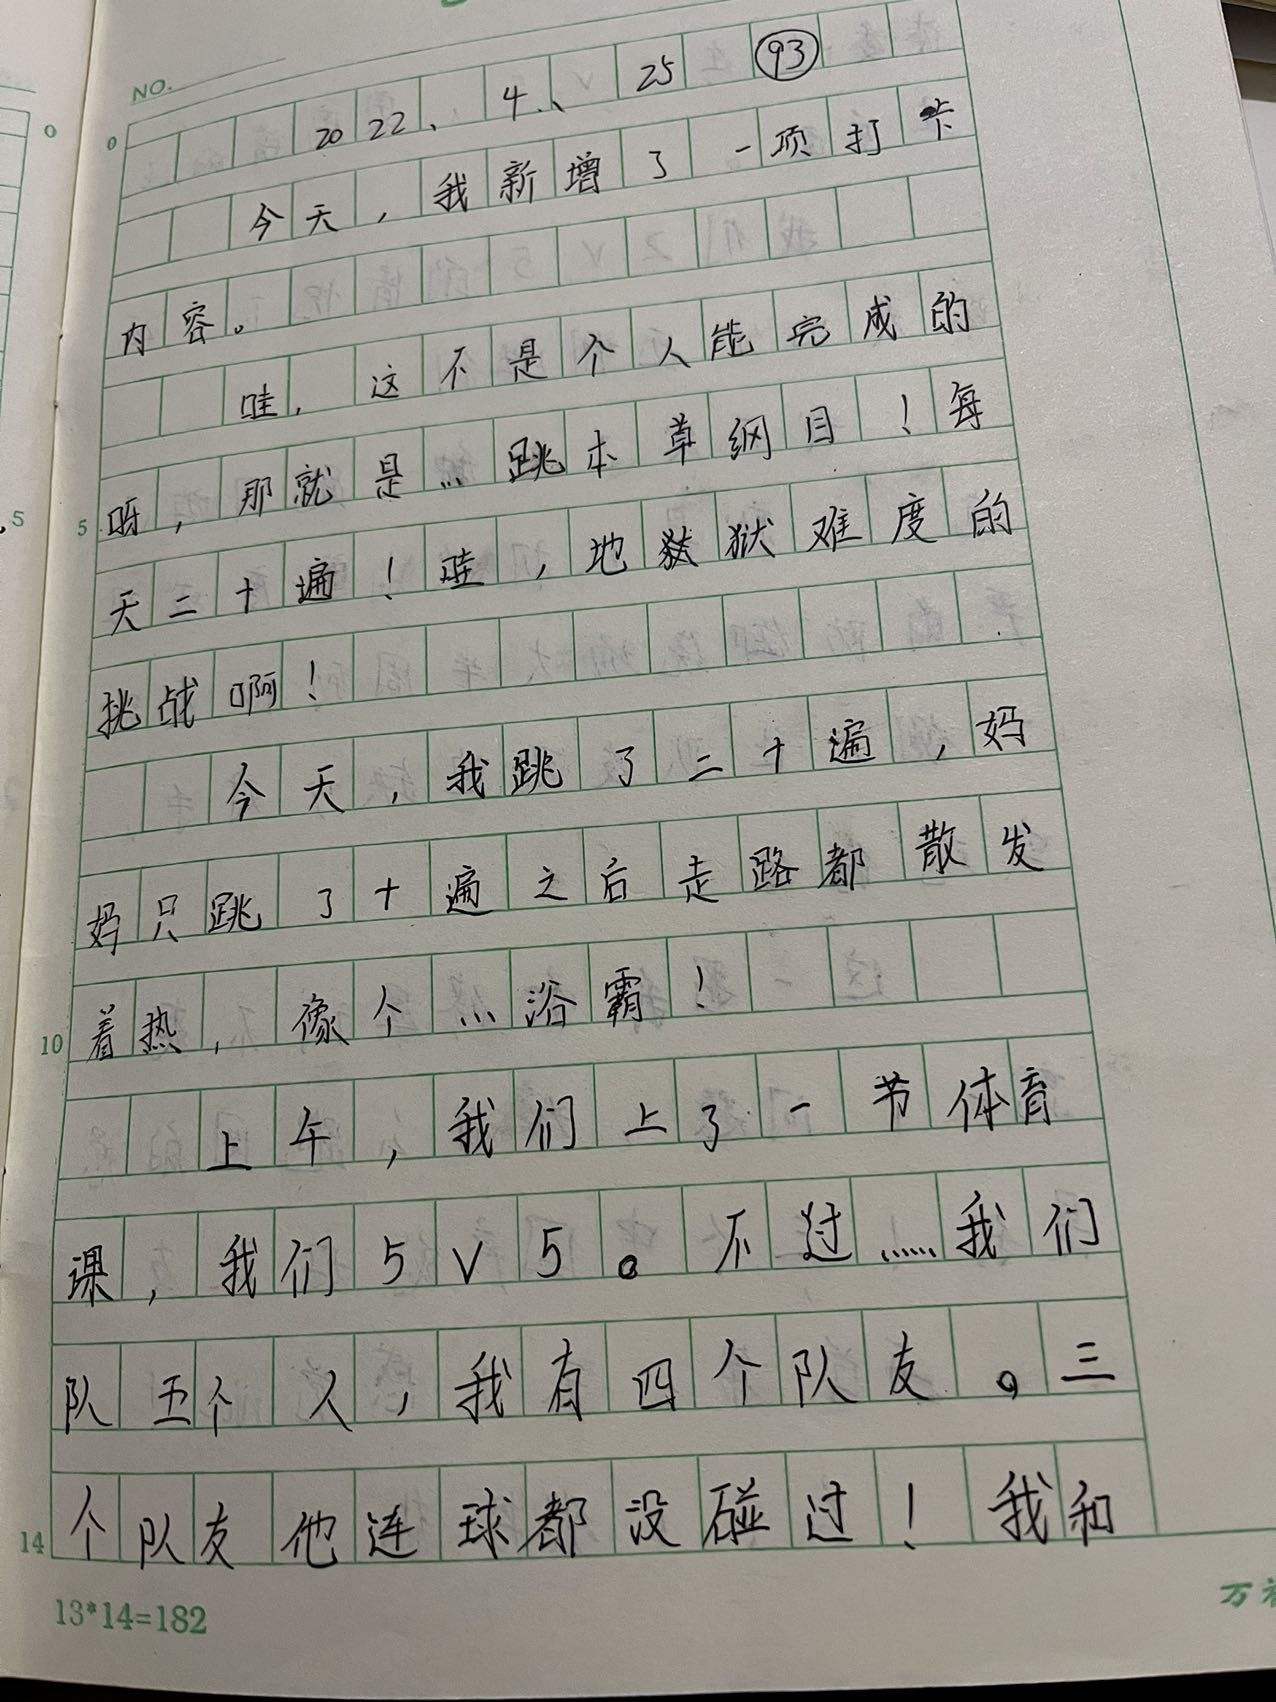 NO.
2022、4、25 93
今天，我新增了一项打卡
内容。
哇，这不是个人能完成的
呀，那就是跳本草纲目！每
天二十遍！哇，地狱难度的
挑战啊！
今天，我跳了二十遍，妈
妈只跳了十遍之后走路都散发
着热，像个浴霸！
上午，我们上了一节体育
课，我们5V5。不过……我们
队五个人，我有四个队友。三
个队友他连球都没碰过！我和
0
0
5
5
10
14
13*14=182
万